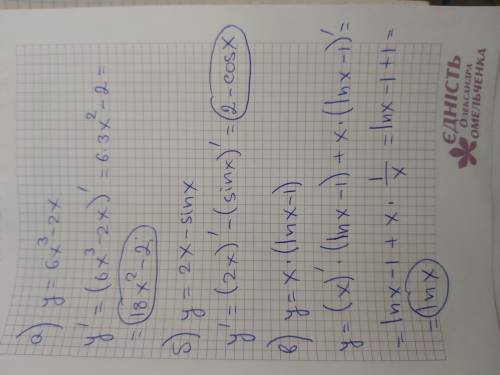 а) y = 6x³ - 2x
y' = (6x³ - 2x)' = 6·3x² - 2 =
= 18x² - 2
б) y = 2x - sinx
y' = (2x)' - (sinx)' = 2 - cosx
в) y = x·(lnx - 1)
y = (x)'·(lnx - 1) + x·(lnx - 1)' =
= lnx - 1 + x · 1/x = lnx - 1 + 1 =
= lnx
ЄДНІСТЬ
ОЛЕКСАНДРА
ОМЕЛЬЧЕНКА